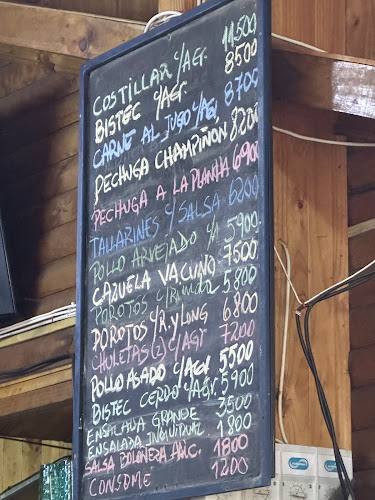 COSTILLAR C/AG. 11.500
BISTEC C/AGR. 8500
CARNE AL JUGO C/AGI 8700
PECHUGA CHAMPIÑON 8200
PECHUGA A LA PLANHA 6900
TALLARINES C/ SALSA 6200
POLLO ARVEJADO 5900
CAZUELA VACUNO 7500
POROTOS 5800
POROTOS C/R. Y LONG 6800
CHULETAS (2) C/AGR 7200
POLLO ASADO C/AGR 5500
BISTEC CERDO C/AGR 5900
ENSALADA GRANDE 3500
ENSALADA INDIVIDUAL 1800
SALSA BOLOÑESA 1800
CONSOME 1200